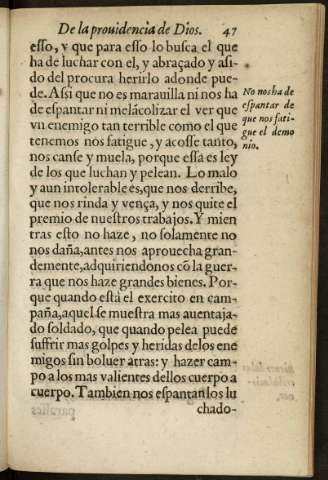 De la prouidencia de Dios. 47
esso, y que para esso lo busca el que
ha de luchar con el, y abraçado y asi-
do del procura herirlo adonde pue-
de. Assi que no es marauilla ni nos ha
de espantar ni melácolizar el ver que
vn enemigo tan terrible como el que
tenemos nos fatigue, y acosse tanto,
nos canse y muela, porque essa es ley
de los que luchan y pelean. Lo malo
y aun intolerable es, que nos derribe,
que nos rinda y vença, y nos quite el
premio de nuestros trabajos. Y mien
tras esto no haze, no solamente no
nos daña, antes nos aprouecha gran-
demente, adquiriendonos cõ la guer-
ra que nos haze grandes bienes. Por-
que quando està el exercito en cam-
paña, aquel se muestra mas auentaja-
do soldado, que quando pelea puede
suffrir mas golpes y heridas delos ene
migos sin boluer atras: y hazer cam-
po a los mas valientes dellos cuerpo a
cuerpo. Tambien nos espantan los lu
chado-
No nos ha de
espantar de
que nos fati-
gue el demo
nio.